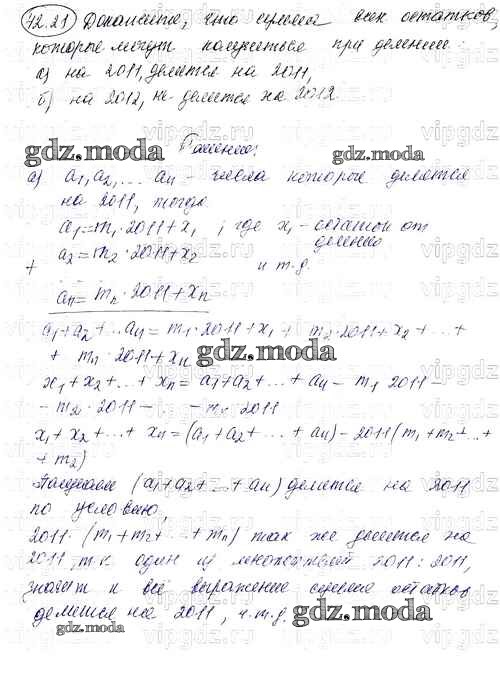 72.21 Докажите, что сумма всех остатков,
которые могут получиться при делении:
а) на 2011, делится на 2011,
б) на 2012, не делится на 2012.
Решение:
gdz.moda gdz.moda
а) a1, a2, ... an - числа которые делятся
на 2011, тогда
a1=m1·2011+x1 ; где x1 - остаток от
деления
a2=m2·2011+x2
+ и т.д.
an=mn·2011+xn
a1+a2+...an=m1·2011+x1+ m2·2011+x2+...+
+ mn·2011+xn
gdz.moda
x1+x2+...+xn=a1+a2+...+an-m1 2011-
-m2·2011-...-mn·2011
x1+x2+...+xn=(a1+a2+...+an)-2011(m1+m2+...+
+m2)
(a1+a2+...+an) делится на 2011
по условию,
2011·(m1+m2+...+mn) так же делится на
2011, т.к один из множителей 2011:2011,
значит и всё выражение сумма остатков
делится на 2011, ч.т.д.
gdz.moda gdz.moda
vipgdz.ru